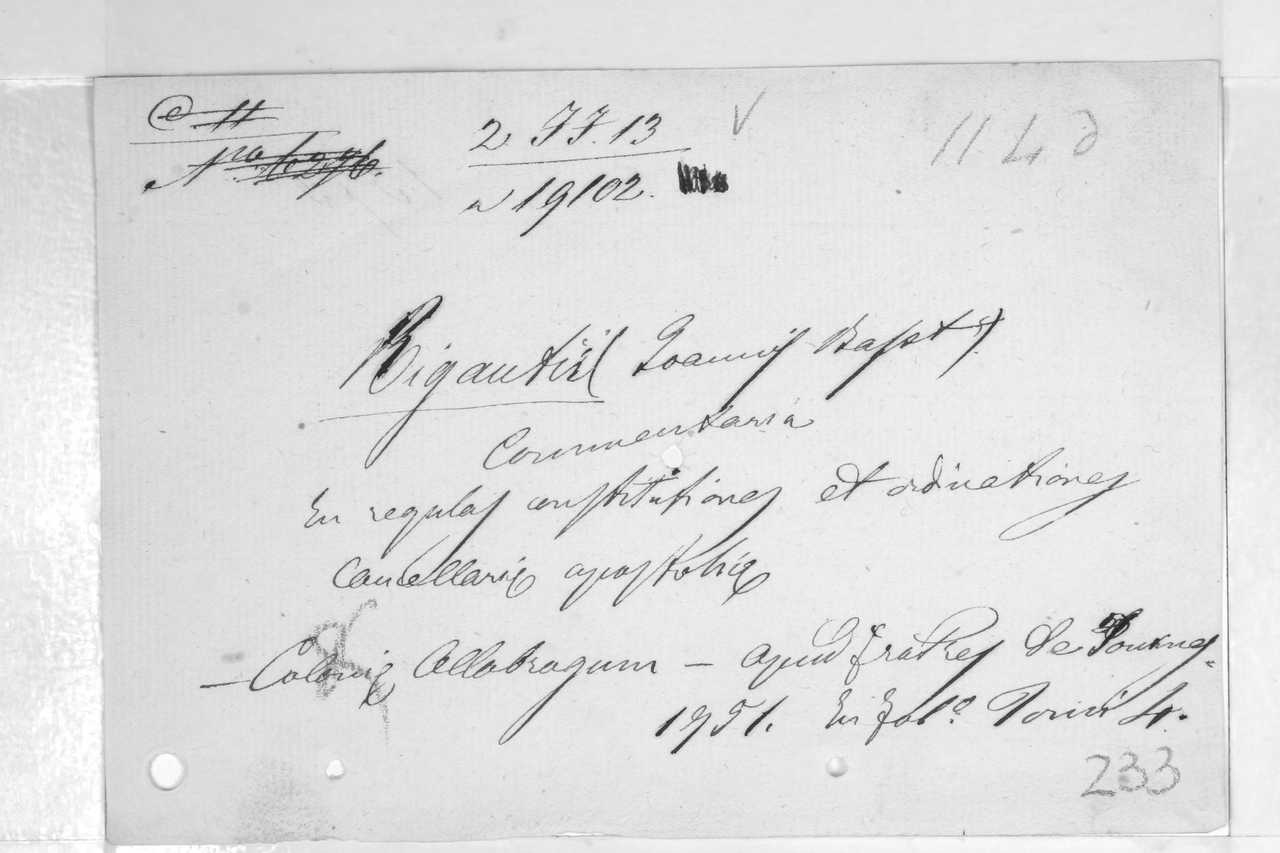 C. 11
Nro
2 FF. 13
V
11 L d
n 19102.
Rigantii (Joannis Bapt.)
Commentaria
In regulas constitutiones et ordinationes
Cancellariæ apostolicæ
— Coloniæ Allobrogum — apud fratres de Tournes.
1751. In fol.º Tomi 4.
233